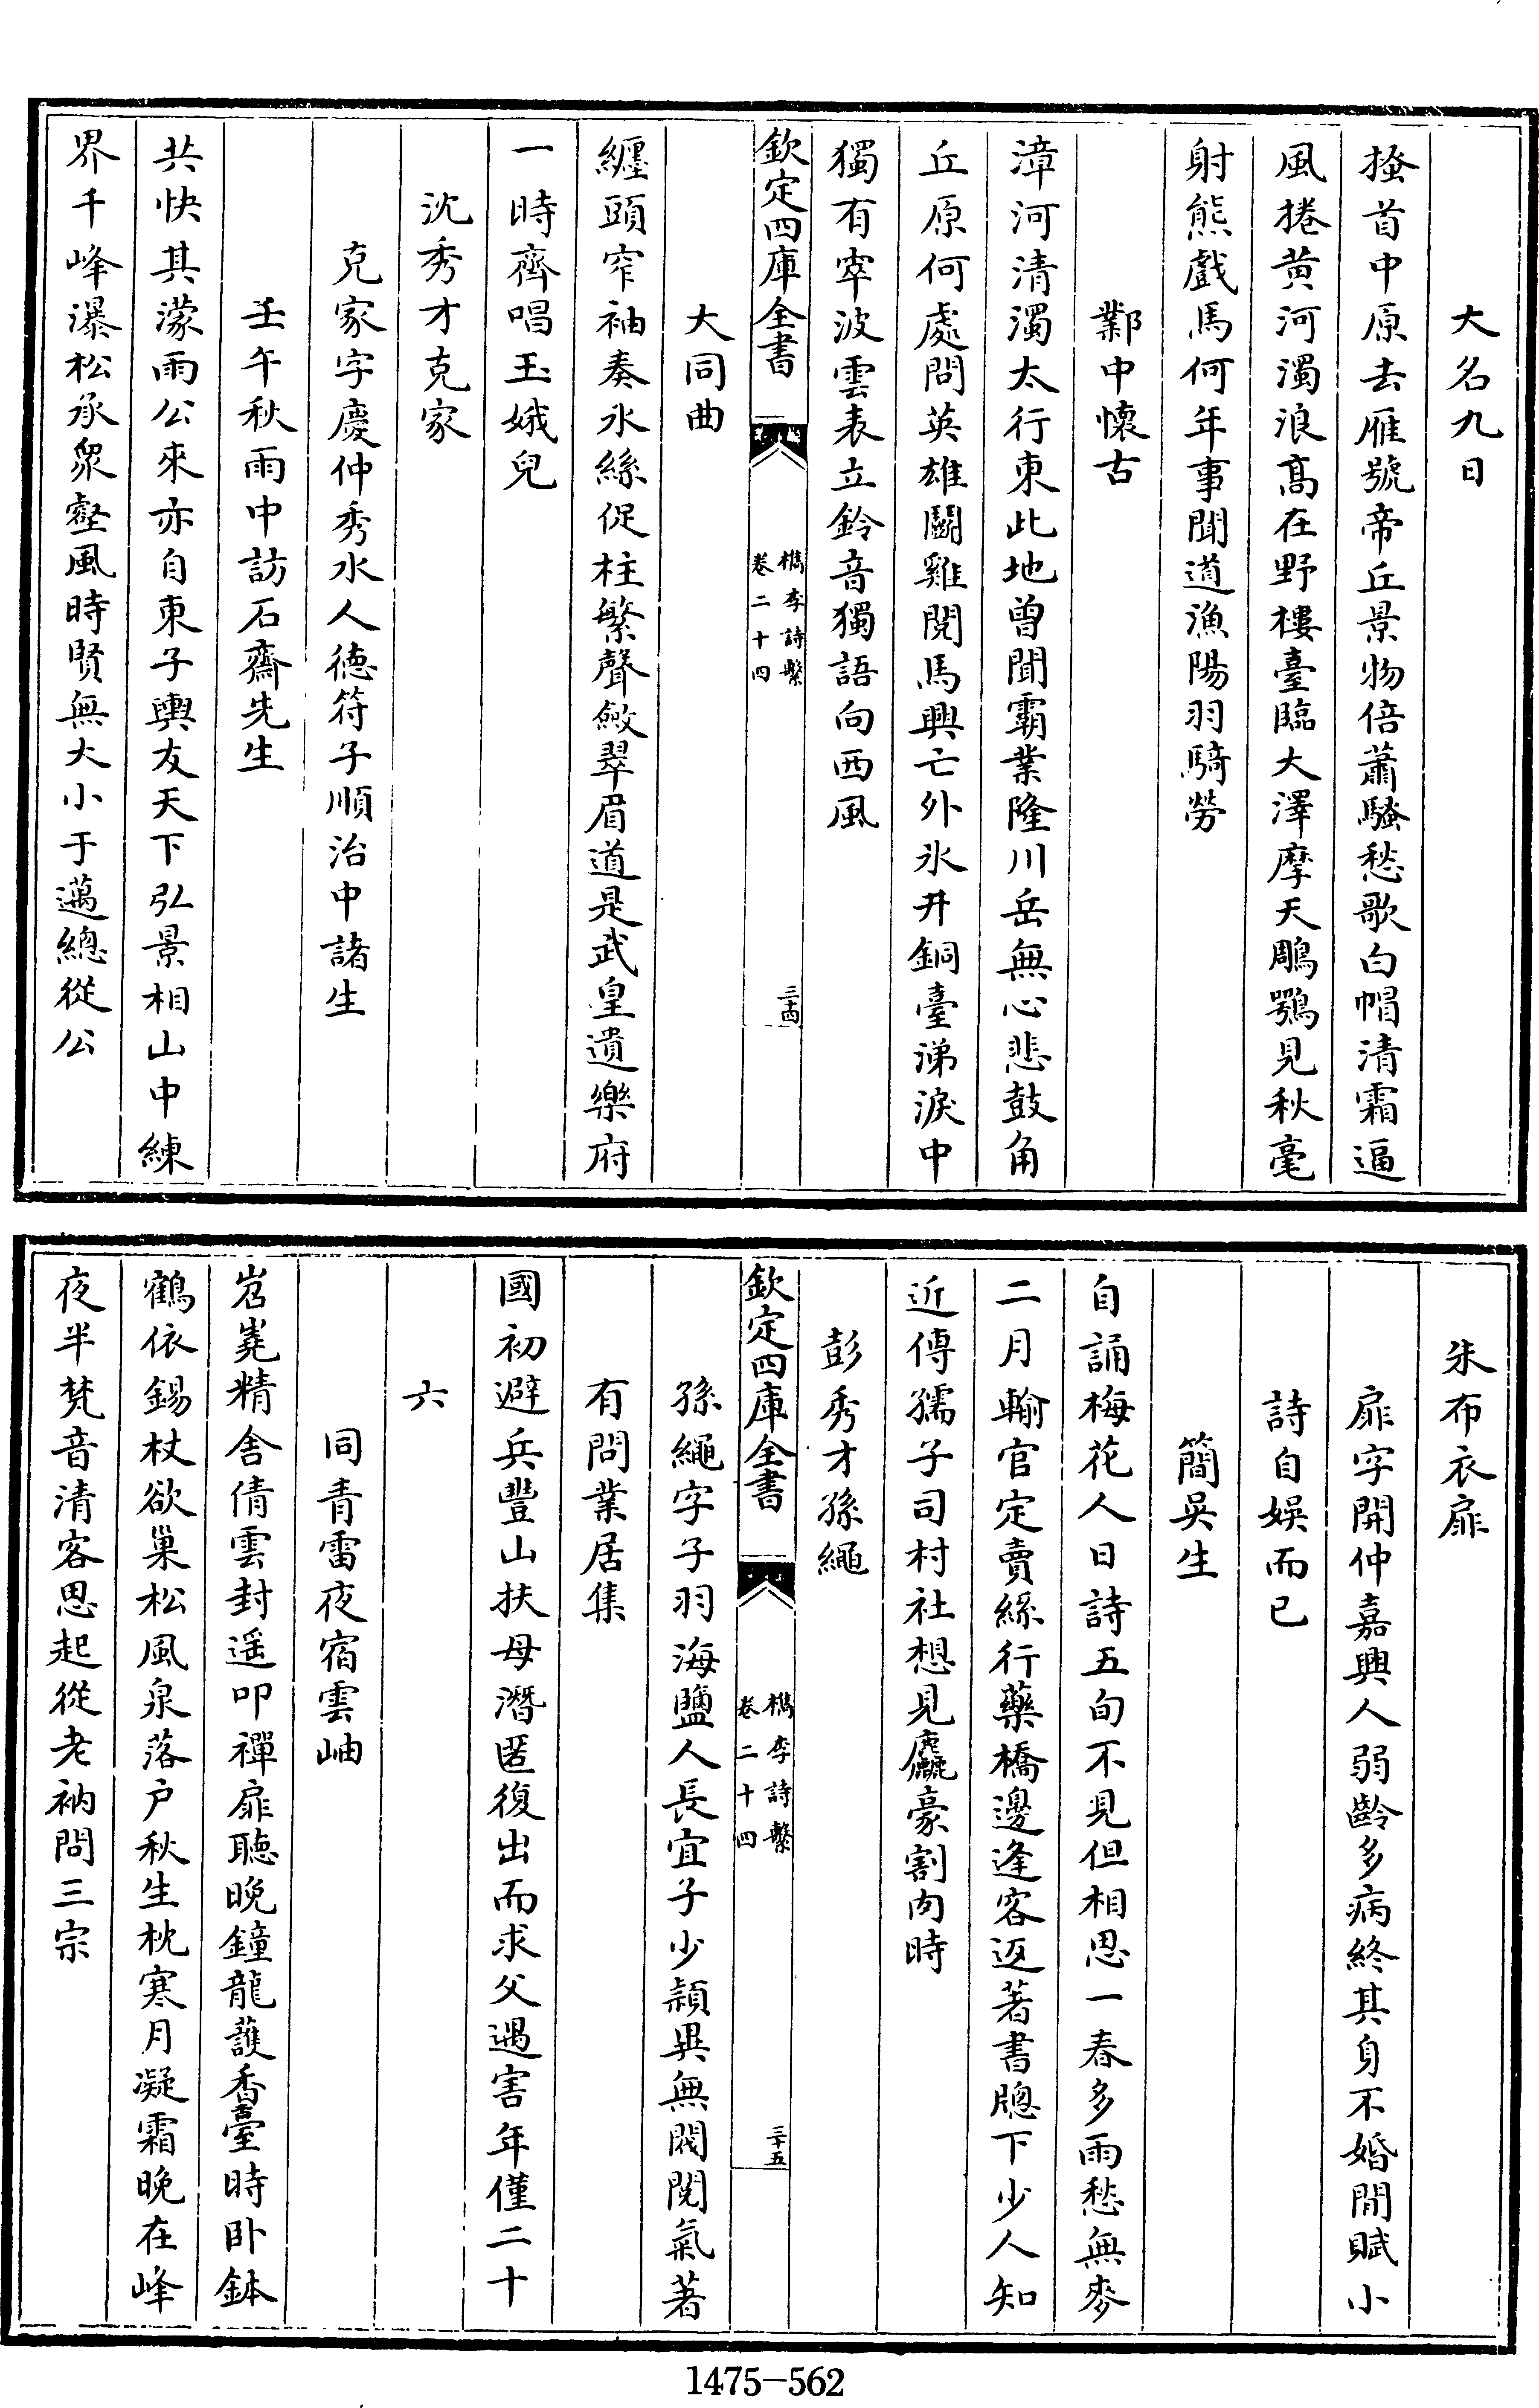 大名九日
搔首中原去雁號帝丘景物倍蕭騷愁歌白帽清霜逼
風捲黄河濁浪髙在野樓臺臨大澤摩天鵰鶚見秋毫
射熊戲馬何年事聞道漁陽羽騎勞
鄴中懷古
漳河清濁太行東此地曾聞霸業隆川岳無心悲鼓角
丘原何處問英雄鬬雞閱馬興亡外氷井銅臺涕淚中
獨有窣波雲表立鈴音獨語向西風
欽定四庫全書
檇李詩繫
卷二十四
三十四
大同曲
纏頭窄袖奏氷絲促柱繁聲斂翠眉道是武皇遺樂府
一時齊唱玉娥兒
沈秀才克家
克家字慶仲秀水人德符子順治中諸生
壬午秋雨中訪石齋先生
共快其濛雨公來亦自東子輿友天下弘景相山中練
界千峰瀑松承衆壑風時賢無大小于邁總從公
朱布衣扉
扉字開仲嘉興人弱齡多病終其身不婚閒賦小
詩自娱而已
簡吳生
自誦梅花人日詩五旬不見但相思一春多雨愁無麥
二月輸官定賣絲行藥橋邊逢客返著書牕下少人知
近傳孺子司村社想見麤豪割肉時
彭秀才孫繩
欽定四庫全書
檇李詩繫
卷二十四
三十五
孫繩字子羽海鹽人長宜子少頴異無閥閱氣著
有問業居集
國初避兵豐山扶母潛匿復出而求父遇害年僅二十
六
同青雷夜宿雲岫
岧嶤精舍倩雲封遥叩禪扉聽晚鐘龍護香臺時卧鉢
鶴依錫杖欲巢松風泉落户秋生枕寒月凝霜晚在峰
夜半梵音清客思起從老衲問三宗
1475-562